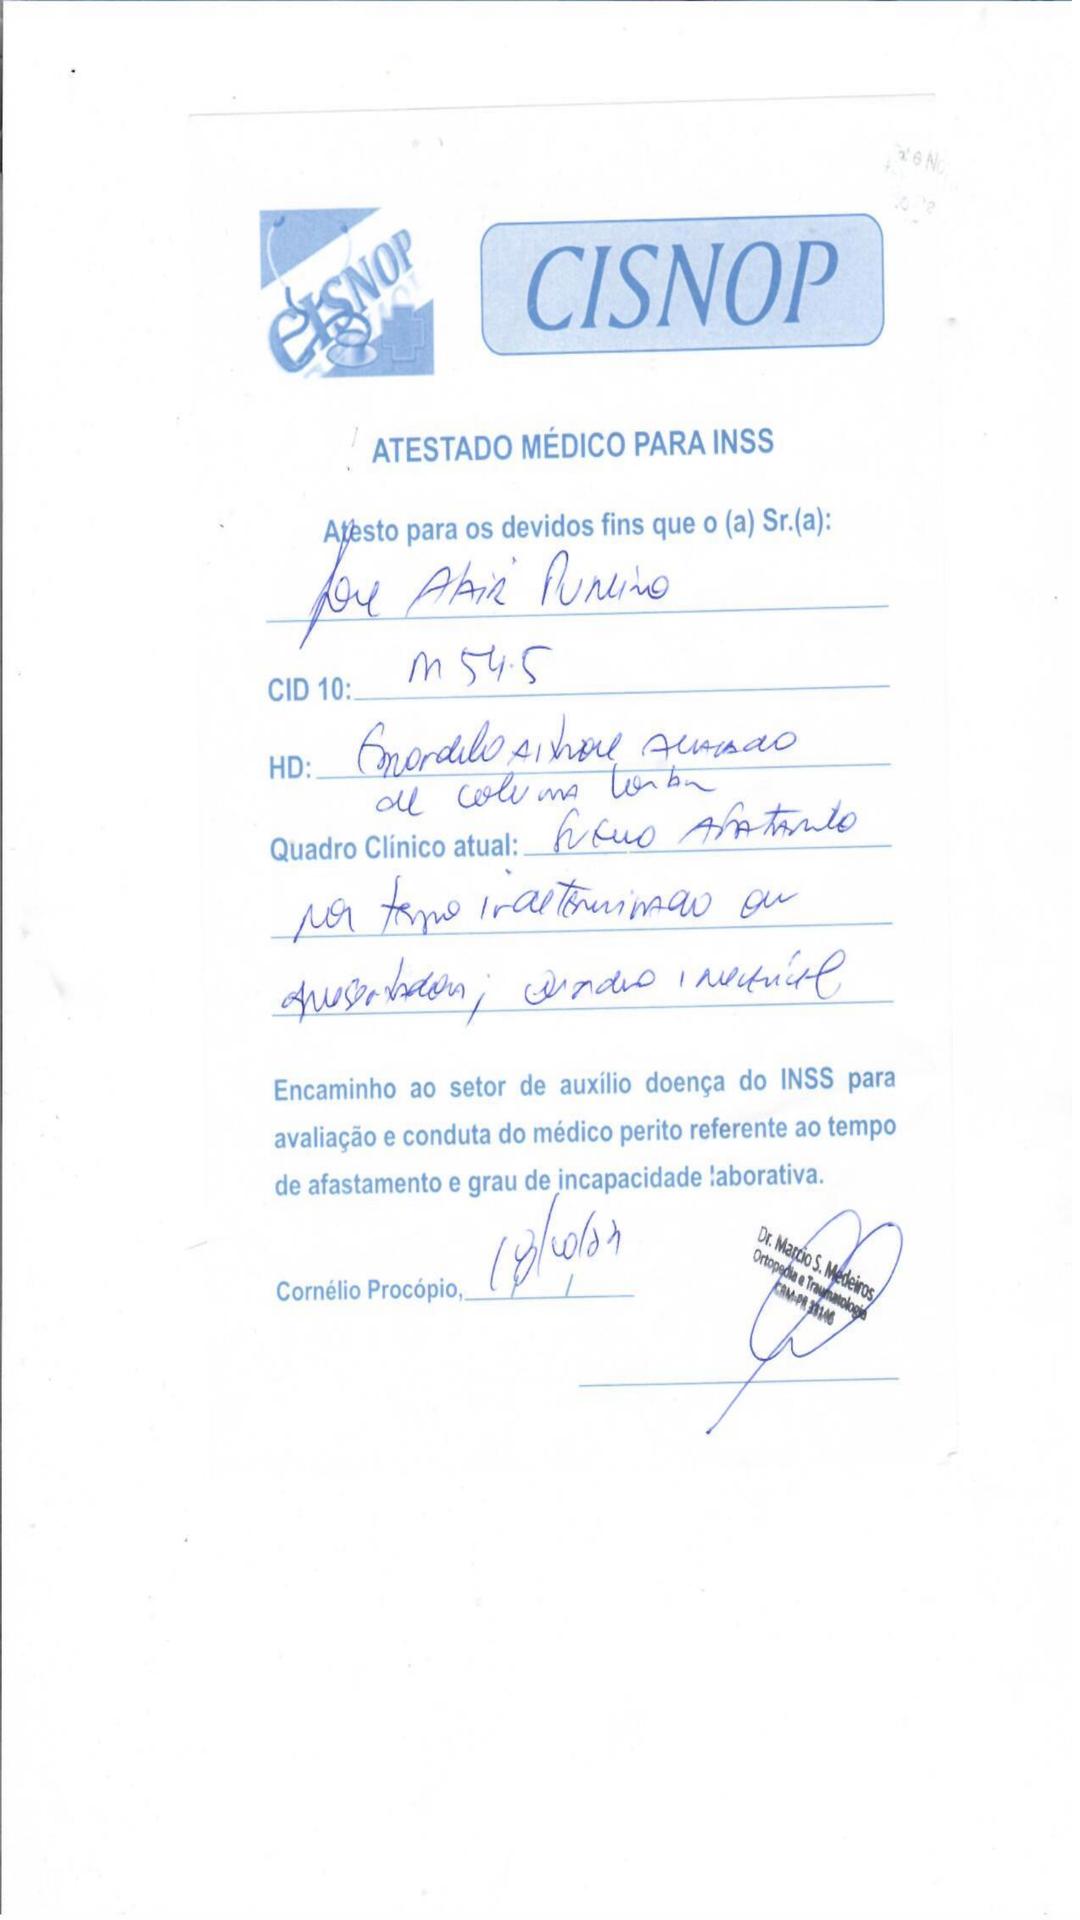 CISNOP
CISNOP
ATESTADO MÉDICO PARA INSS
Atesto para os devidos fins que o (a) Sr.(a):
José Altair
CID 10: M 54.5
HD: avançado
de coluna lombar
Quadro Clínico atual: Afastamento
por tempo indeterminado ou
aposentadoria; quadro irreversível
Encaminho ao setor de auxílio doença do INSS para
avaliação e conduta do médico perito referente ao tempo
de afastamento e grau de incapacidade laborativa.
Cornélio Procópio,
Dr. Marcio S. Medeiros
Ortopedia e Traumatologia
CRM-PR